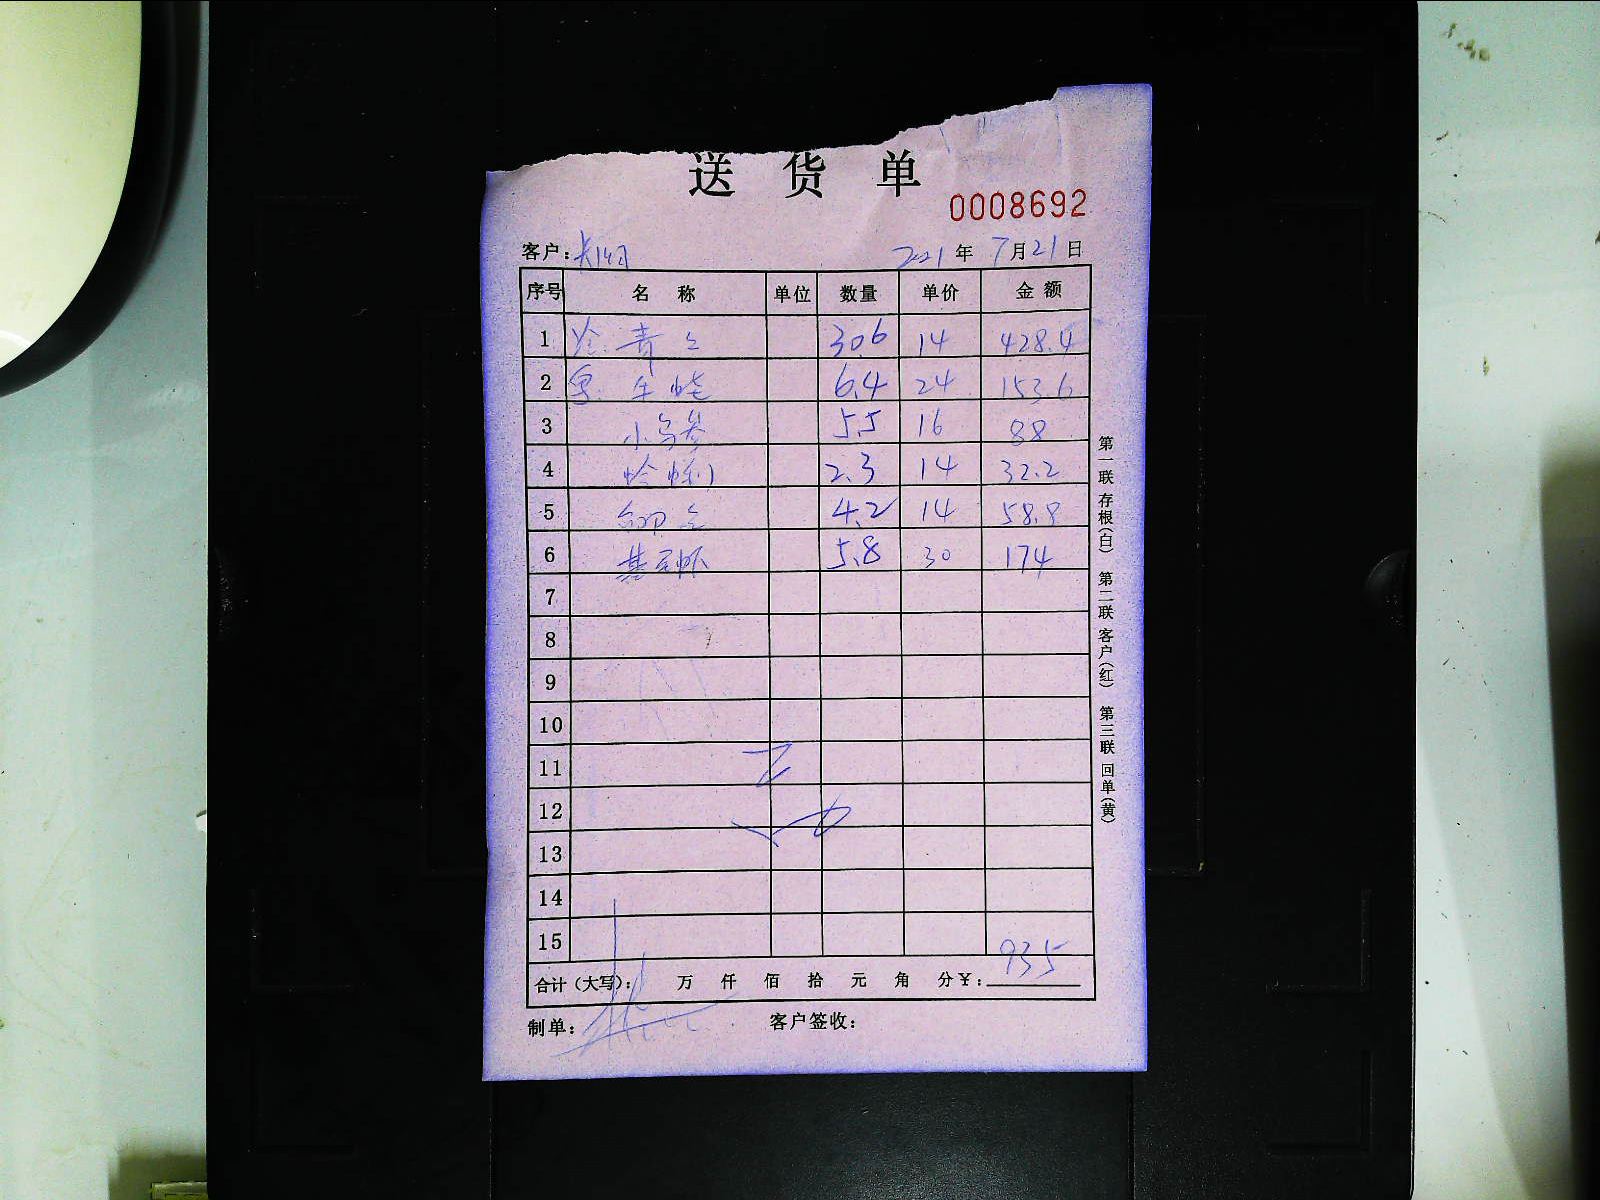 送货单
0008692
客户: 2021年7月21日
序号 名称 单位 数量 单价 金额
1 青 306 14 428.4
2 生蚝 6.4 24 153.6
3 小乌参 5.5 16 88
4 蛤蜊 2.3 14 32.2
5 4.2 14 58.8
6 基尾虾 5.8 30 174
7
8
9
10
11
12
13
14
15
合计(大写): 万 仟 佰 拾 元 角 分¥: 935
制单: 客户签收:
第一联 存根(白) 第二联 客户(红) 第三联 回单(黄)